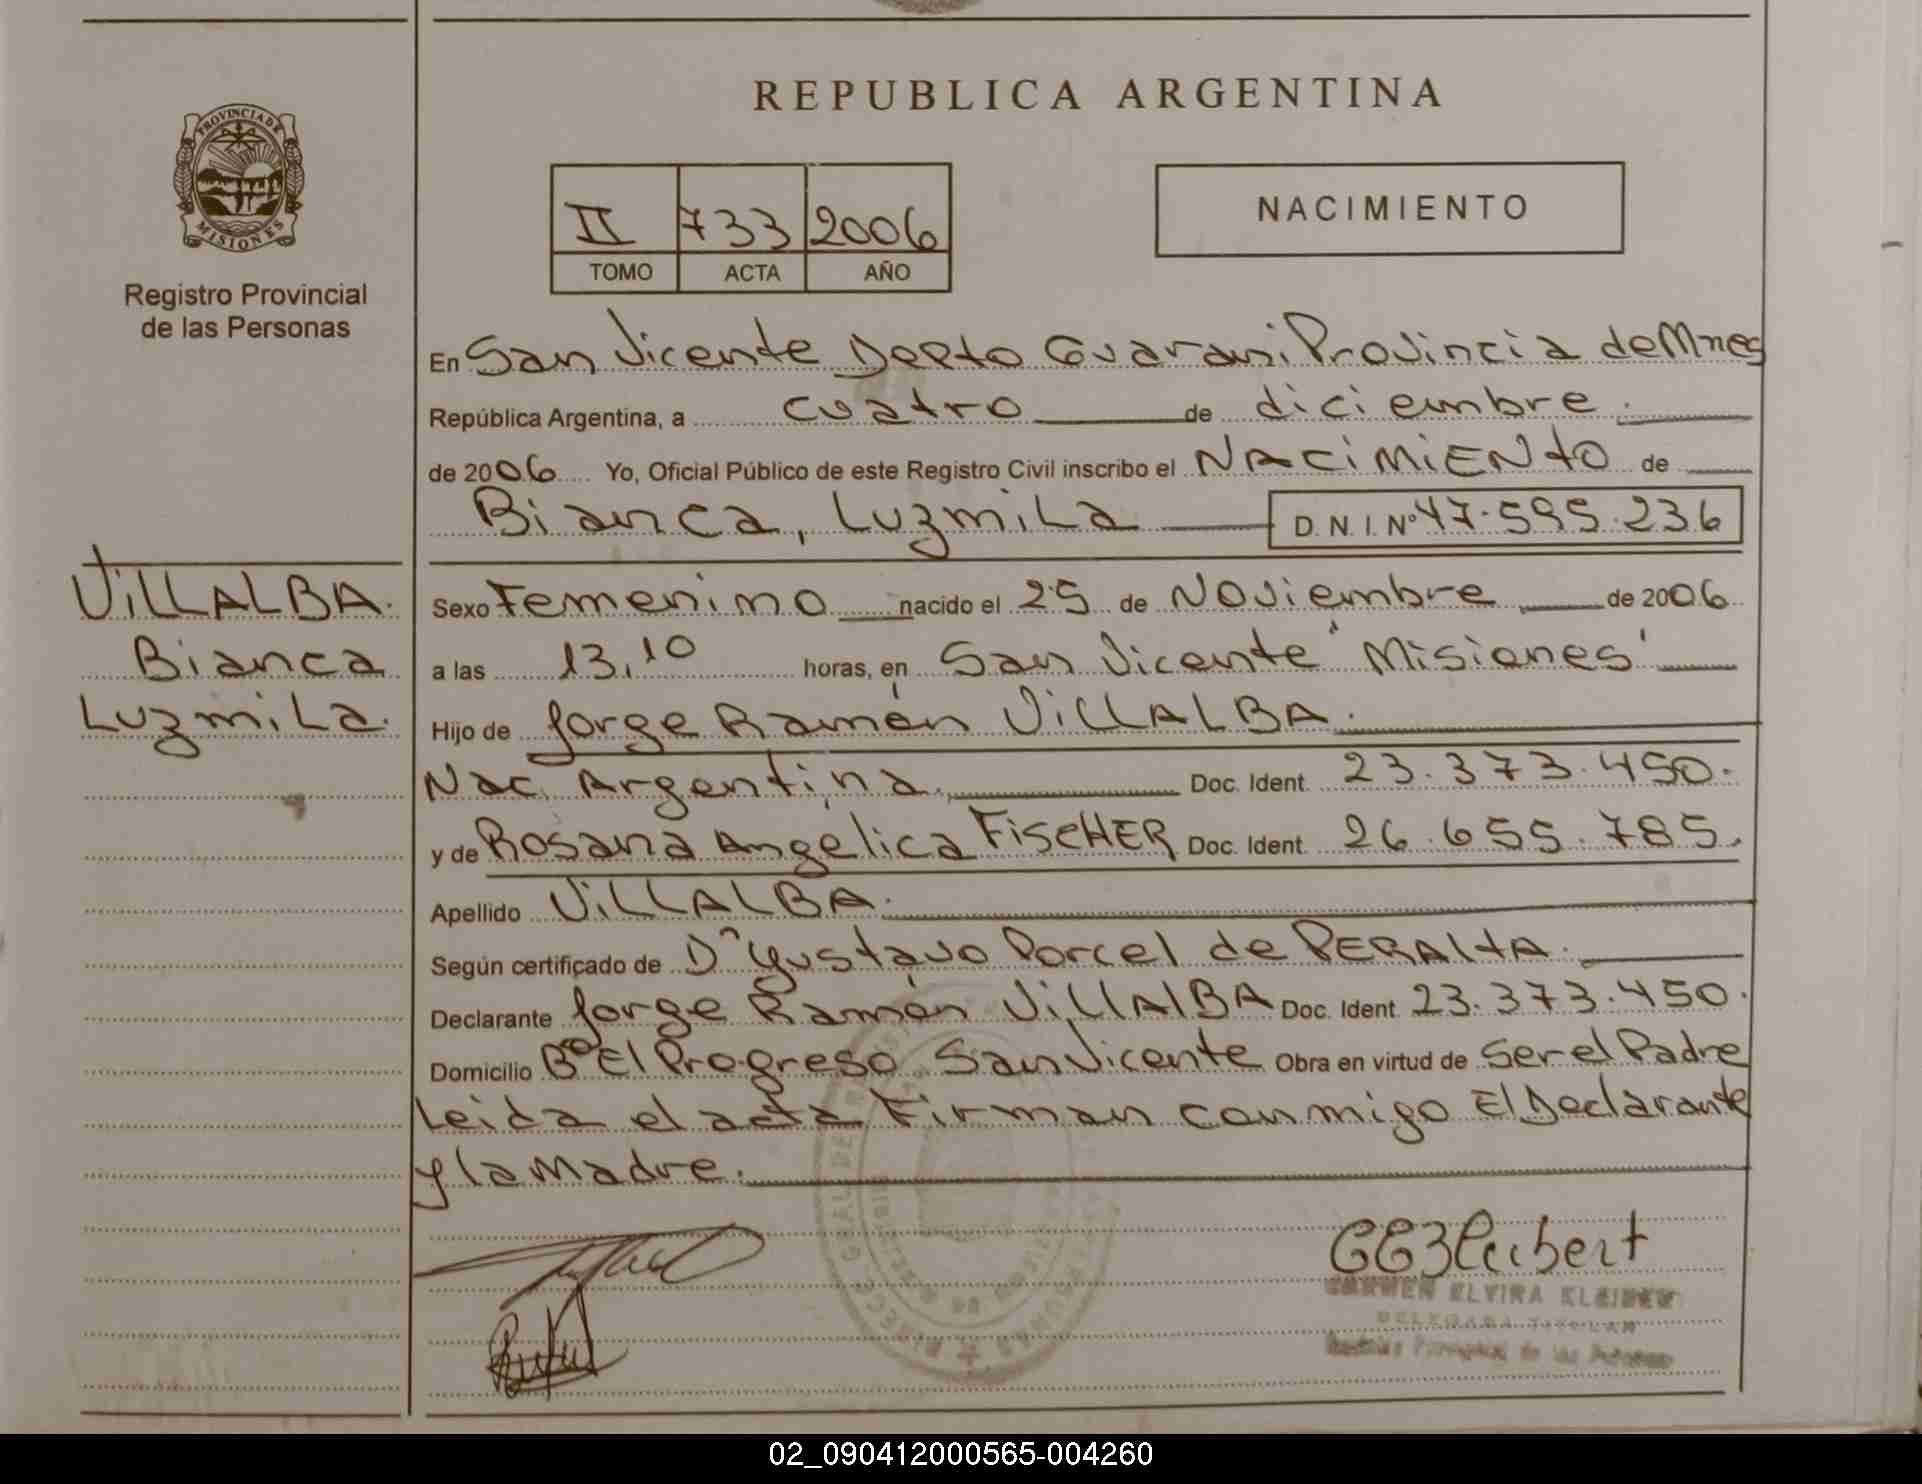 REPUBLICA ARGENTINA
PROVINCIA DE
MISIONES
Registro Provincial
de las Personas
II 733 2006
TOMO ACTA AÑO
NACIMIENTO
En San Vicente Depto Guarani Provincia de Mnes
República Argentina, a cuatro de diciembre.
de 2006 Yo, Oficial Público de este Registro Civil inscribo el NACIMIENTO de
Bianca, Luzmila D.N.I. Nº 47.595.236
VILLALBA.
Bianca
Luzmila.
Sexo Femenino nacido el 25 de Noviembre de 2006
a las 13,10 horas, en San Vicente 'Misiones'
Hijo de Jorge Ramón VILLALBA.
Nac. Argentina. Doc. Ident. 23.373.450.
y de Rosana Angelica FISCHER Doc. Ident. 26.655.785.
Apellido VILLALBA.
Según certificado de Dr Gustavo Porcel de PERALTA.
Declarante Jorge Ramón VILLALBA Doc. Ident. 23.373.450.
Domicilio Bº El Progreso San Vicente Obra en virtud de Ser el Padre
Leida el acta Firman conmigo El Declarante
y la Madre.
CARMEN ELVIRA
DELEGADA TITULAR
de las Personas
02_090412000565-004260